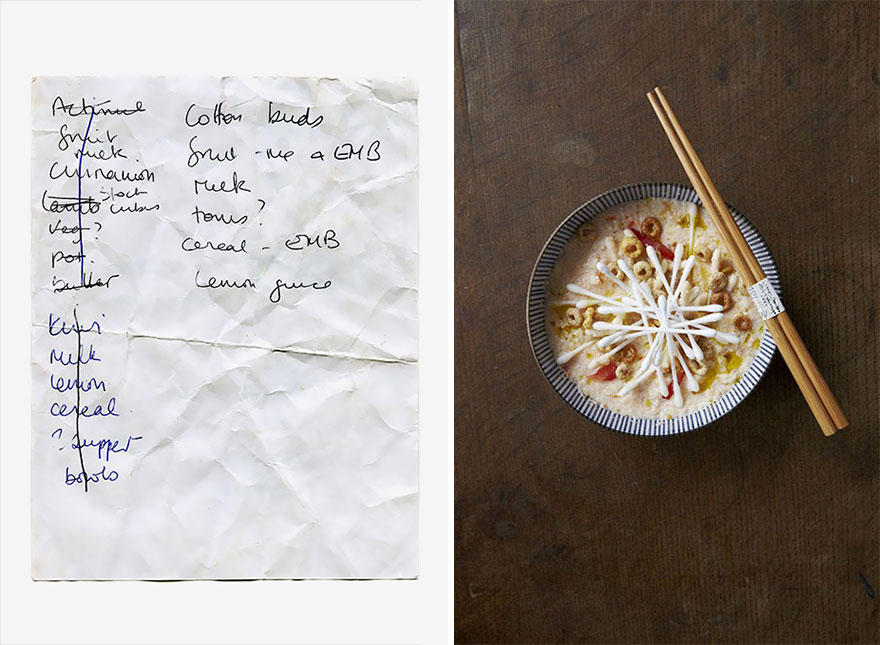 Actimel
fruit
milk
cinnamon
lamb stock cubes
veg?
pot.
butter
kiwi
milk
lemon
cereal
? supper
bowls
cotton buds
fruit - me & EMB
milk
toms?
cereal - EMB
lemon juice